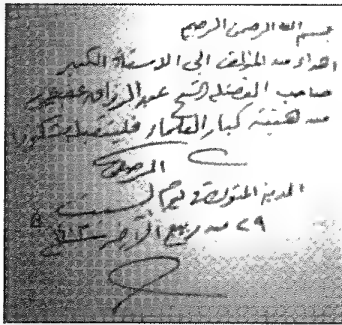 بسم الله الرحمن الرحيم
اهداء من المؤلف الى الاستاذ الكبير
صاحب الفضيلة الشيخ عبد الرزاق عفيفي
من هيئة كبار العلماء
المدينة المنورة في يوم السبت
٢٩ من ربيع الآخر